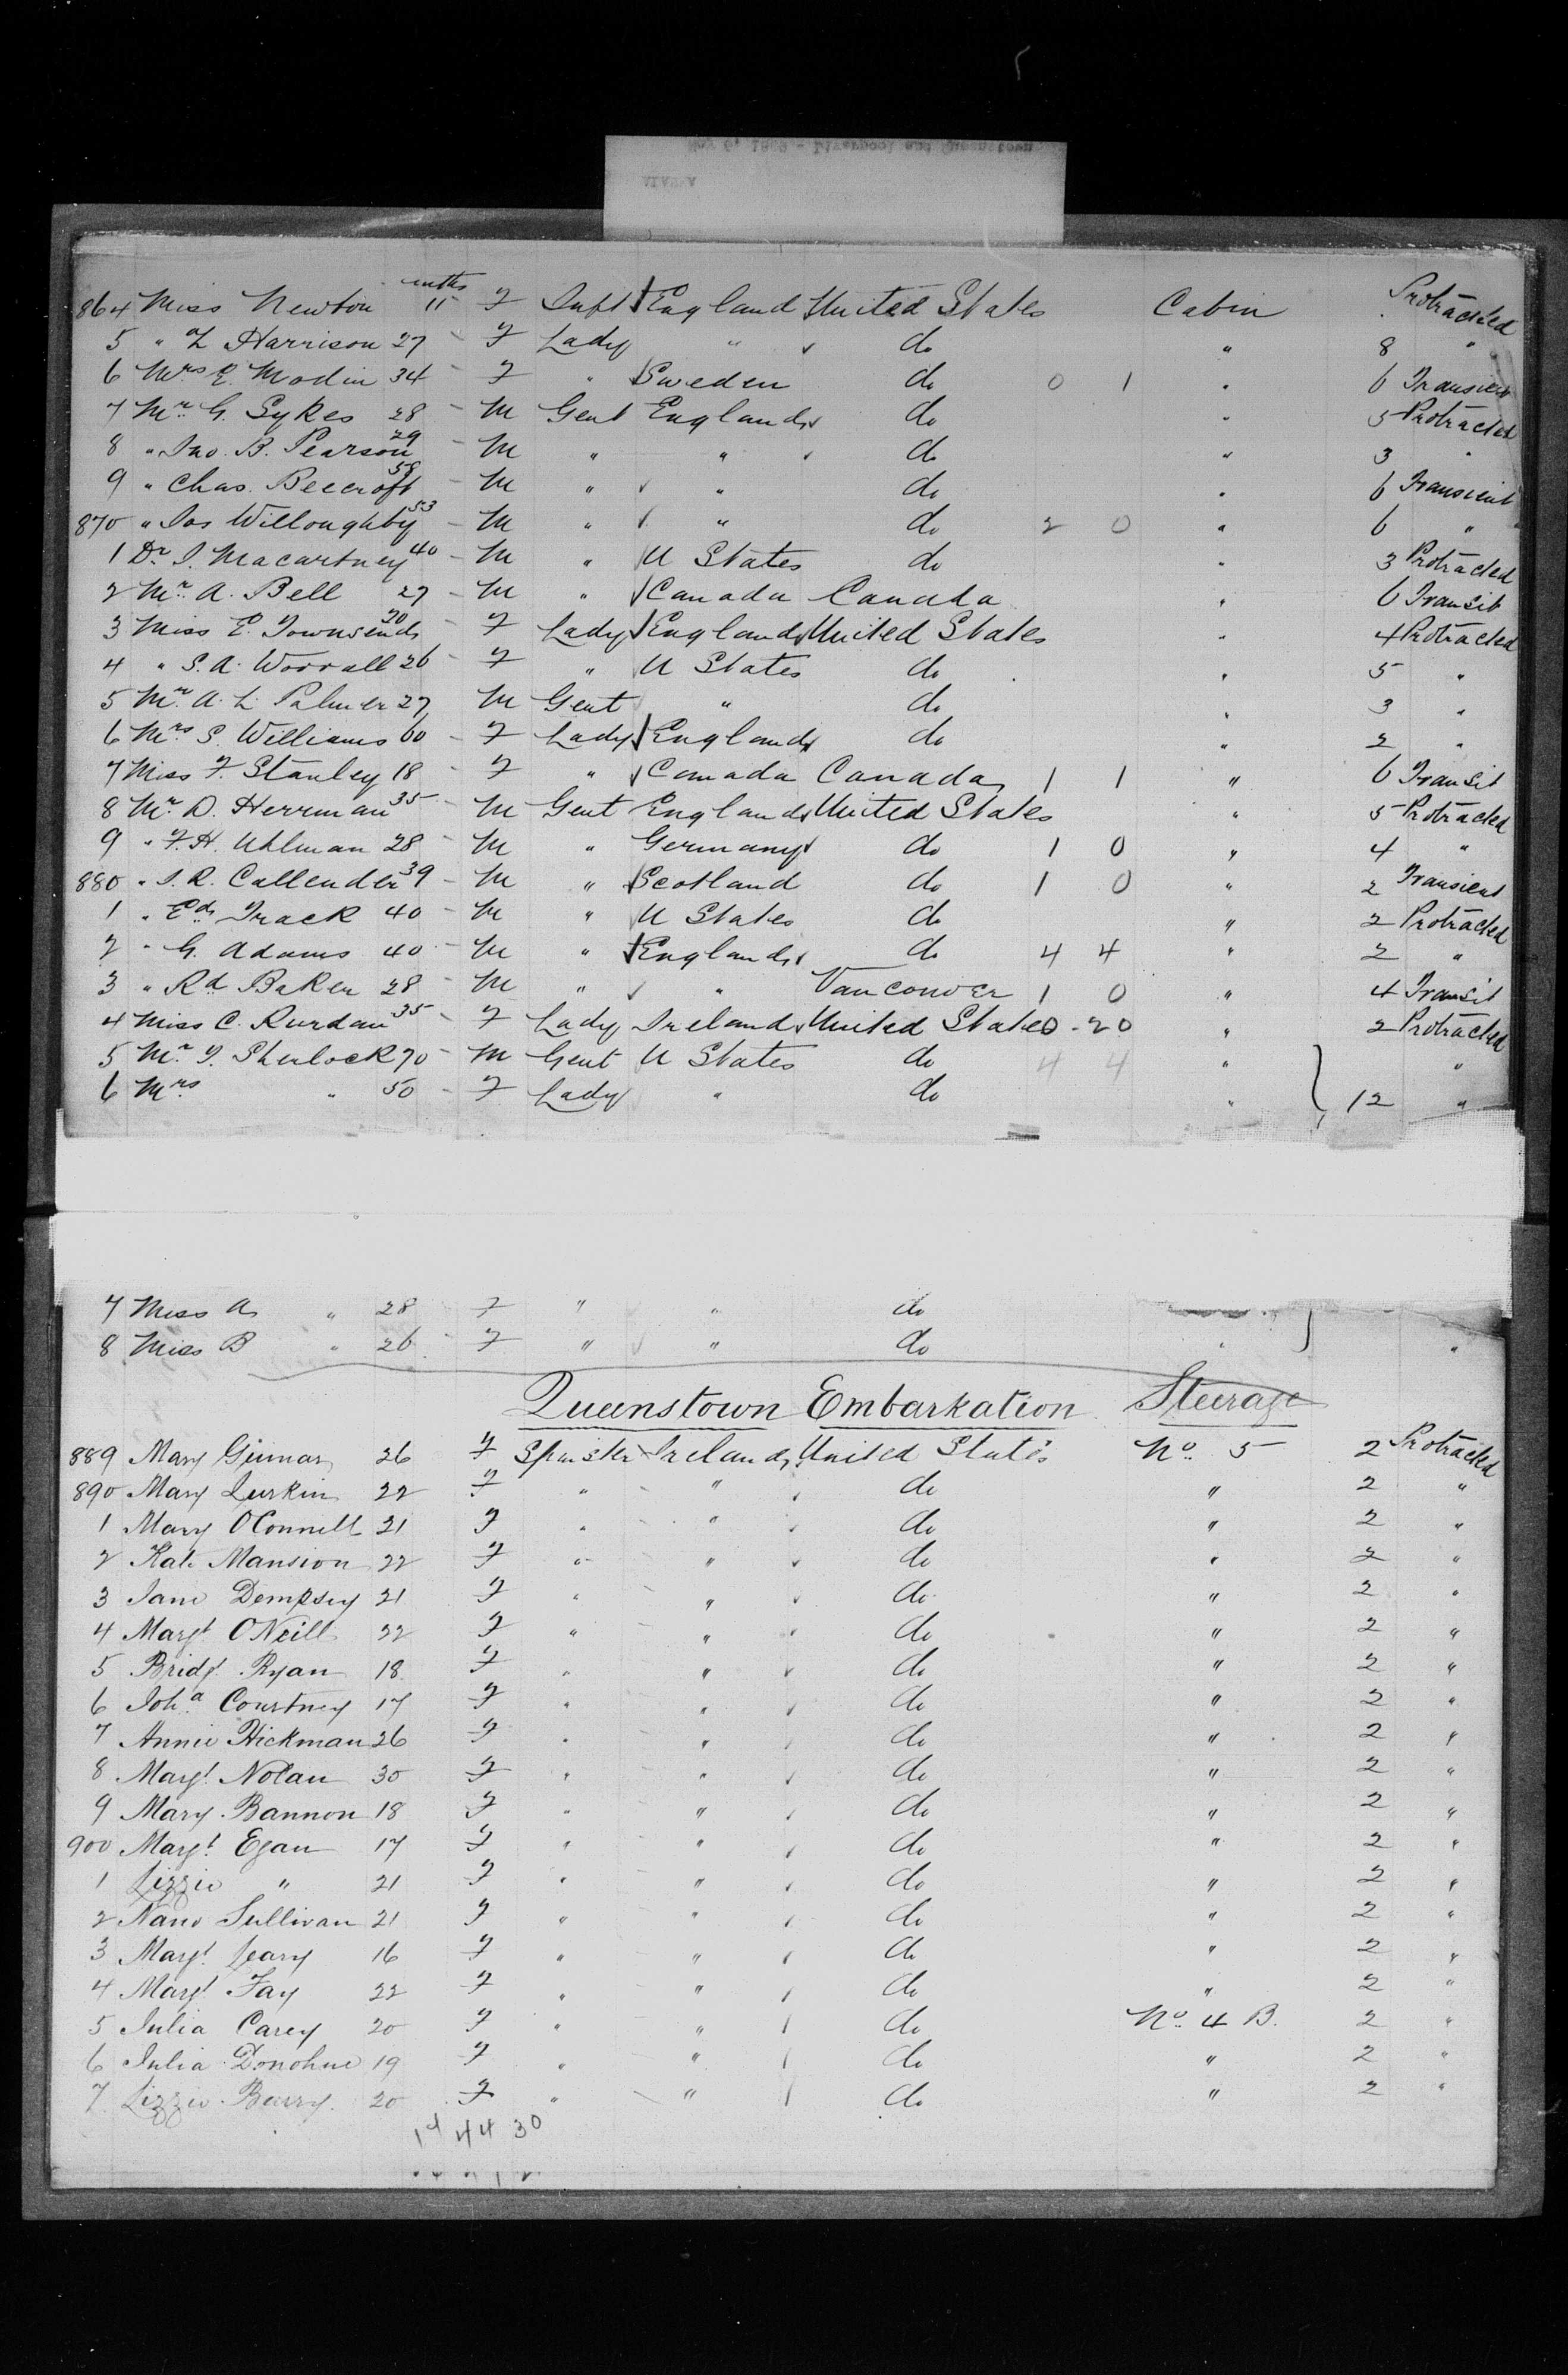 mths
864 Miss Newton 11 F Inft England United States Cabin Protracted
5 " L Harrison 27 - F Lady " do " 8 "
6 Mrs E. Modin 34 - F " Sweden do 0 1 " 6 Transient
7 Mr. G. Sykes 28 - M Gent England do " 5 Protracted
8 " Jno. B. Pearson 29 - M " " do " 3 "
9 " Chas. Beecroft 58 - M " " do " 6 Transient
870 " Jas Willoughby 53 - M " " do 2 0 " 6 "
1 Dr. J. Macartney 40 - M " U States do " 3 Protracted
2 Mr. A. Bell 27 - M " Canada Canada " 6 Transit
3 Miss E. Townsend 20 - F Lady England United States " 4 Protracted
4 " S. A. Worrall 26 - F " U States do " 5 "
5 Mr. A. L. Palmer 27 M Gent " do " 3 "
6 Mrs S. Williams 60 - F Lady England do " 2 "
7 Miss F. Stanley 18 - F " Canada Canada 1 1 " 6 Transit
8 Mr. D. Herrman 35 - M Gent England United States " 5 Protracted
9 " F. H. Uhlman 28 - M " Germany do 1 0 " 4 "
880 " J. R. Callender 39 - M " Scotland do 1 0 " 2 Transient
1 " Ed. Track 40 - M " U States do " 2 Protracted
2 " G. Adams 40 - M " England do 4 4 " 2 "
3 " Rd Baker 28 - M " " Vanconver 1 0 " 4 Transit
4 Miss C. Rurdan 35 - F Lady Ireland United States 0 - 20 " 2 Protracted
5 Mr. Sherlock 70 - M Gent U States do 4 4 " "
6 Mrs " 50 - F Lady " do " 12 "
7 Miss A " 28 F " " do
8 Miss B " 26 F " " do " "
Queenstown Embarkation Steerage
889 Mary 26 F Spinster Ireland United States No. 5 2 Protracted
890 Mary Lurkin 22 F " " do " 2 "
1 Mary OConnell 21 F " " do " 2 "
2 Kate Mansion 22 F " " do " 2 "
3 Jane Dempsey 21 F " " do " 2 "
4 Margt. ONeill 22 F " " do " 2 "
5 Bridgt. Ryan 18 F " " do " 2 "
6 Joha. Courtney 17 F " " do " 2 "
7 Annie Hickman 26 F " " do " 2 "
8 Margt. Nolan 30 F " " do " 2 "
9 Mary Bannon 18 F " " do " 2 "
900 Margt. Egan 17 F " " do " 2 "
1 Lizzie " 21 F " " do " 2 "
2 Nano Sullivan 21 F " " do " 2 "
3 Margt. Leary 16 F " " do " 2 "
4 Margt Fay 22 F " " do " 2 "
5 Julia Carey 20 F " " do No. 4 B. 2 "
6 Julia Donohue 19 F " " do " 2 "
7 Lizzie Barry 20 F " " do " 2 "
14 44 30